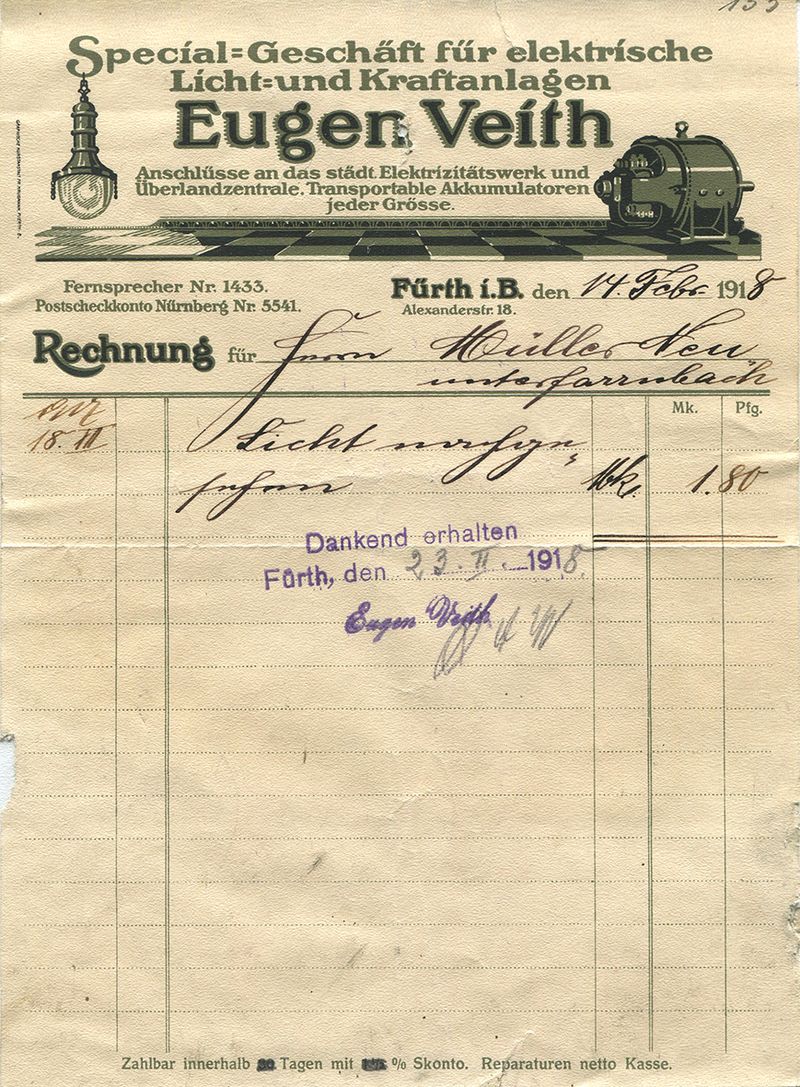 133
Special=Geschäft für elektrische
Licht=und Kraftanlagen
Eugen Veith
Anschlüsse an das städt. Elektrizitätswerk und
Überlandzentrale. Transportable Akkumulatoren
jeder Grösse.
Fernsprecher Nr. 1433.
Postscheckkonto Nürnberg Nr. 5541.
Fürth i.B. den 14. Febr. 1918
Alexanderstr. 18.
Rechnung für Herrn Müller Neu
unterfarrnbach
Mk. Pfg.
18. II Licht nachge„
sehen Mk. 1.80
Dankend erhalten
Fürth, den 23. II. 1918.
Eugen Veith
Zahlbar innerhalb Tagen mit % Skonto. Reparaturen netto Kasse.